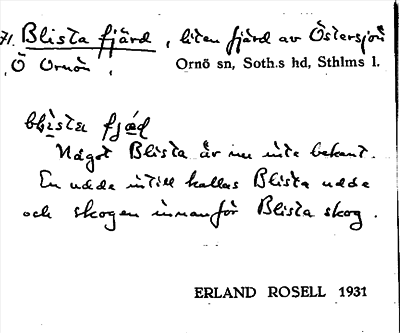 71. Blista fjärd, liten fjärd av Östersjön
Ö Ornön. Ornö sn, Soth.s hd, Sthlms l.
Något Blista är nu inte bekant.
En udde intill kallas Blista udde
och skogen innanför Blista skog.
ERLAND ROSELL 1931